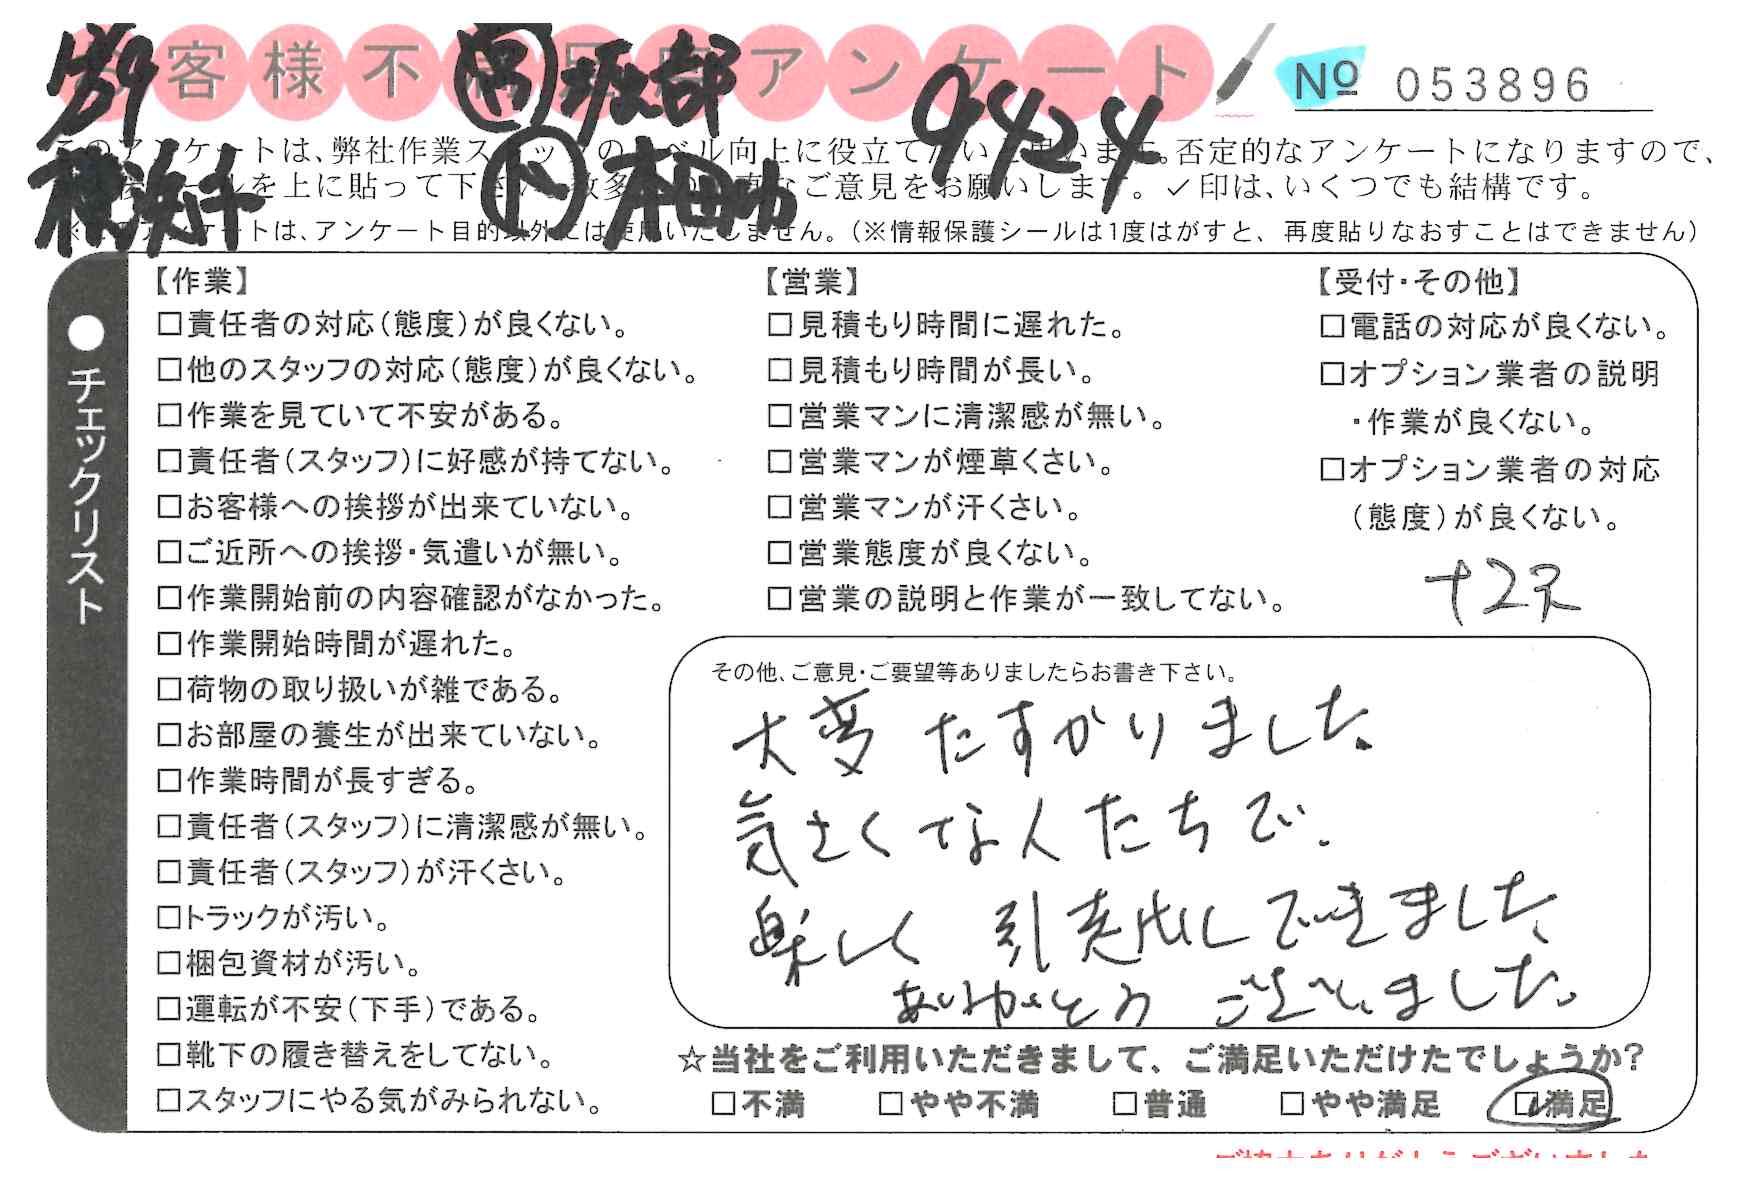 お客様不満足度アンケート
1/29
㋳ 坂部
9424
No 053896
横浜千
ト 本田力
このアンケートは、弊社作業スタッフのレベル向上に役立てたいと思います。否定的なアンケートになりますので、
シールを上に貼って下さい。数多くの正直なご意見をお願いします。✓印は、いくつでも結構です。
※このアンケートは、アンケート目的以外には使用いたしません。(※情報保護シールは1度はがすと、再度貼りなおすことはできません)
●チェックリスト
【作業】
□責任者の対応(態度)が良くない。
□他のスタッフの対応(態度)が良くない。
□作業を見ていて不安がある。
□責任者(スタッフ)に好感が持てない。
□お客様への挨拶が出来ていない。
□ご近所への挨拶・気遣いが無い。
□作業開始前の内容確認がなかった。
□作業開始時間が遅れた。
□荷物の取り扱いが雑である。
□お部屋の養生が出来ていない。
□作業時間が長すぎる。
□責任者(スタッフ)に清潔感が無い。
□責任者(スタッフ)が汗くさい。
□トラックが汚い。
□梱包資材が汚い。
□運転が不安(下手)である。
□靴下の履き替えをしてない。
□スタッフにやる気がみられない。
【営業】
□見積もり時間に遅れた。
□見積もり時間が長い。
□営業マンに清潔感が無い。
□営業マンが煙草くさい。
□営業マンが汗くさい。
□営業態度が良くない。
□営業の説明と作業が一致してない。
【受付・その他】
□電話の対応が良くない。
□オプション業者の説明
・作業が良くない。
□オプション業者の対応
(態度)が良くない。
その他、ご意見・ご要望等ありましたらお書き下さい。
大変たすかりました
気さくな人たちで、
楽しく引越出しできました
ありがとうございました。
☆当社をご利用いただきまして、ご満足いただけたでしょうか?
□不満 □やや不満 □普通 □やや満足 ☑満足
ご協力ありがとうございました